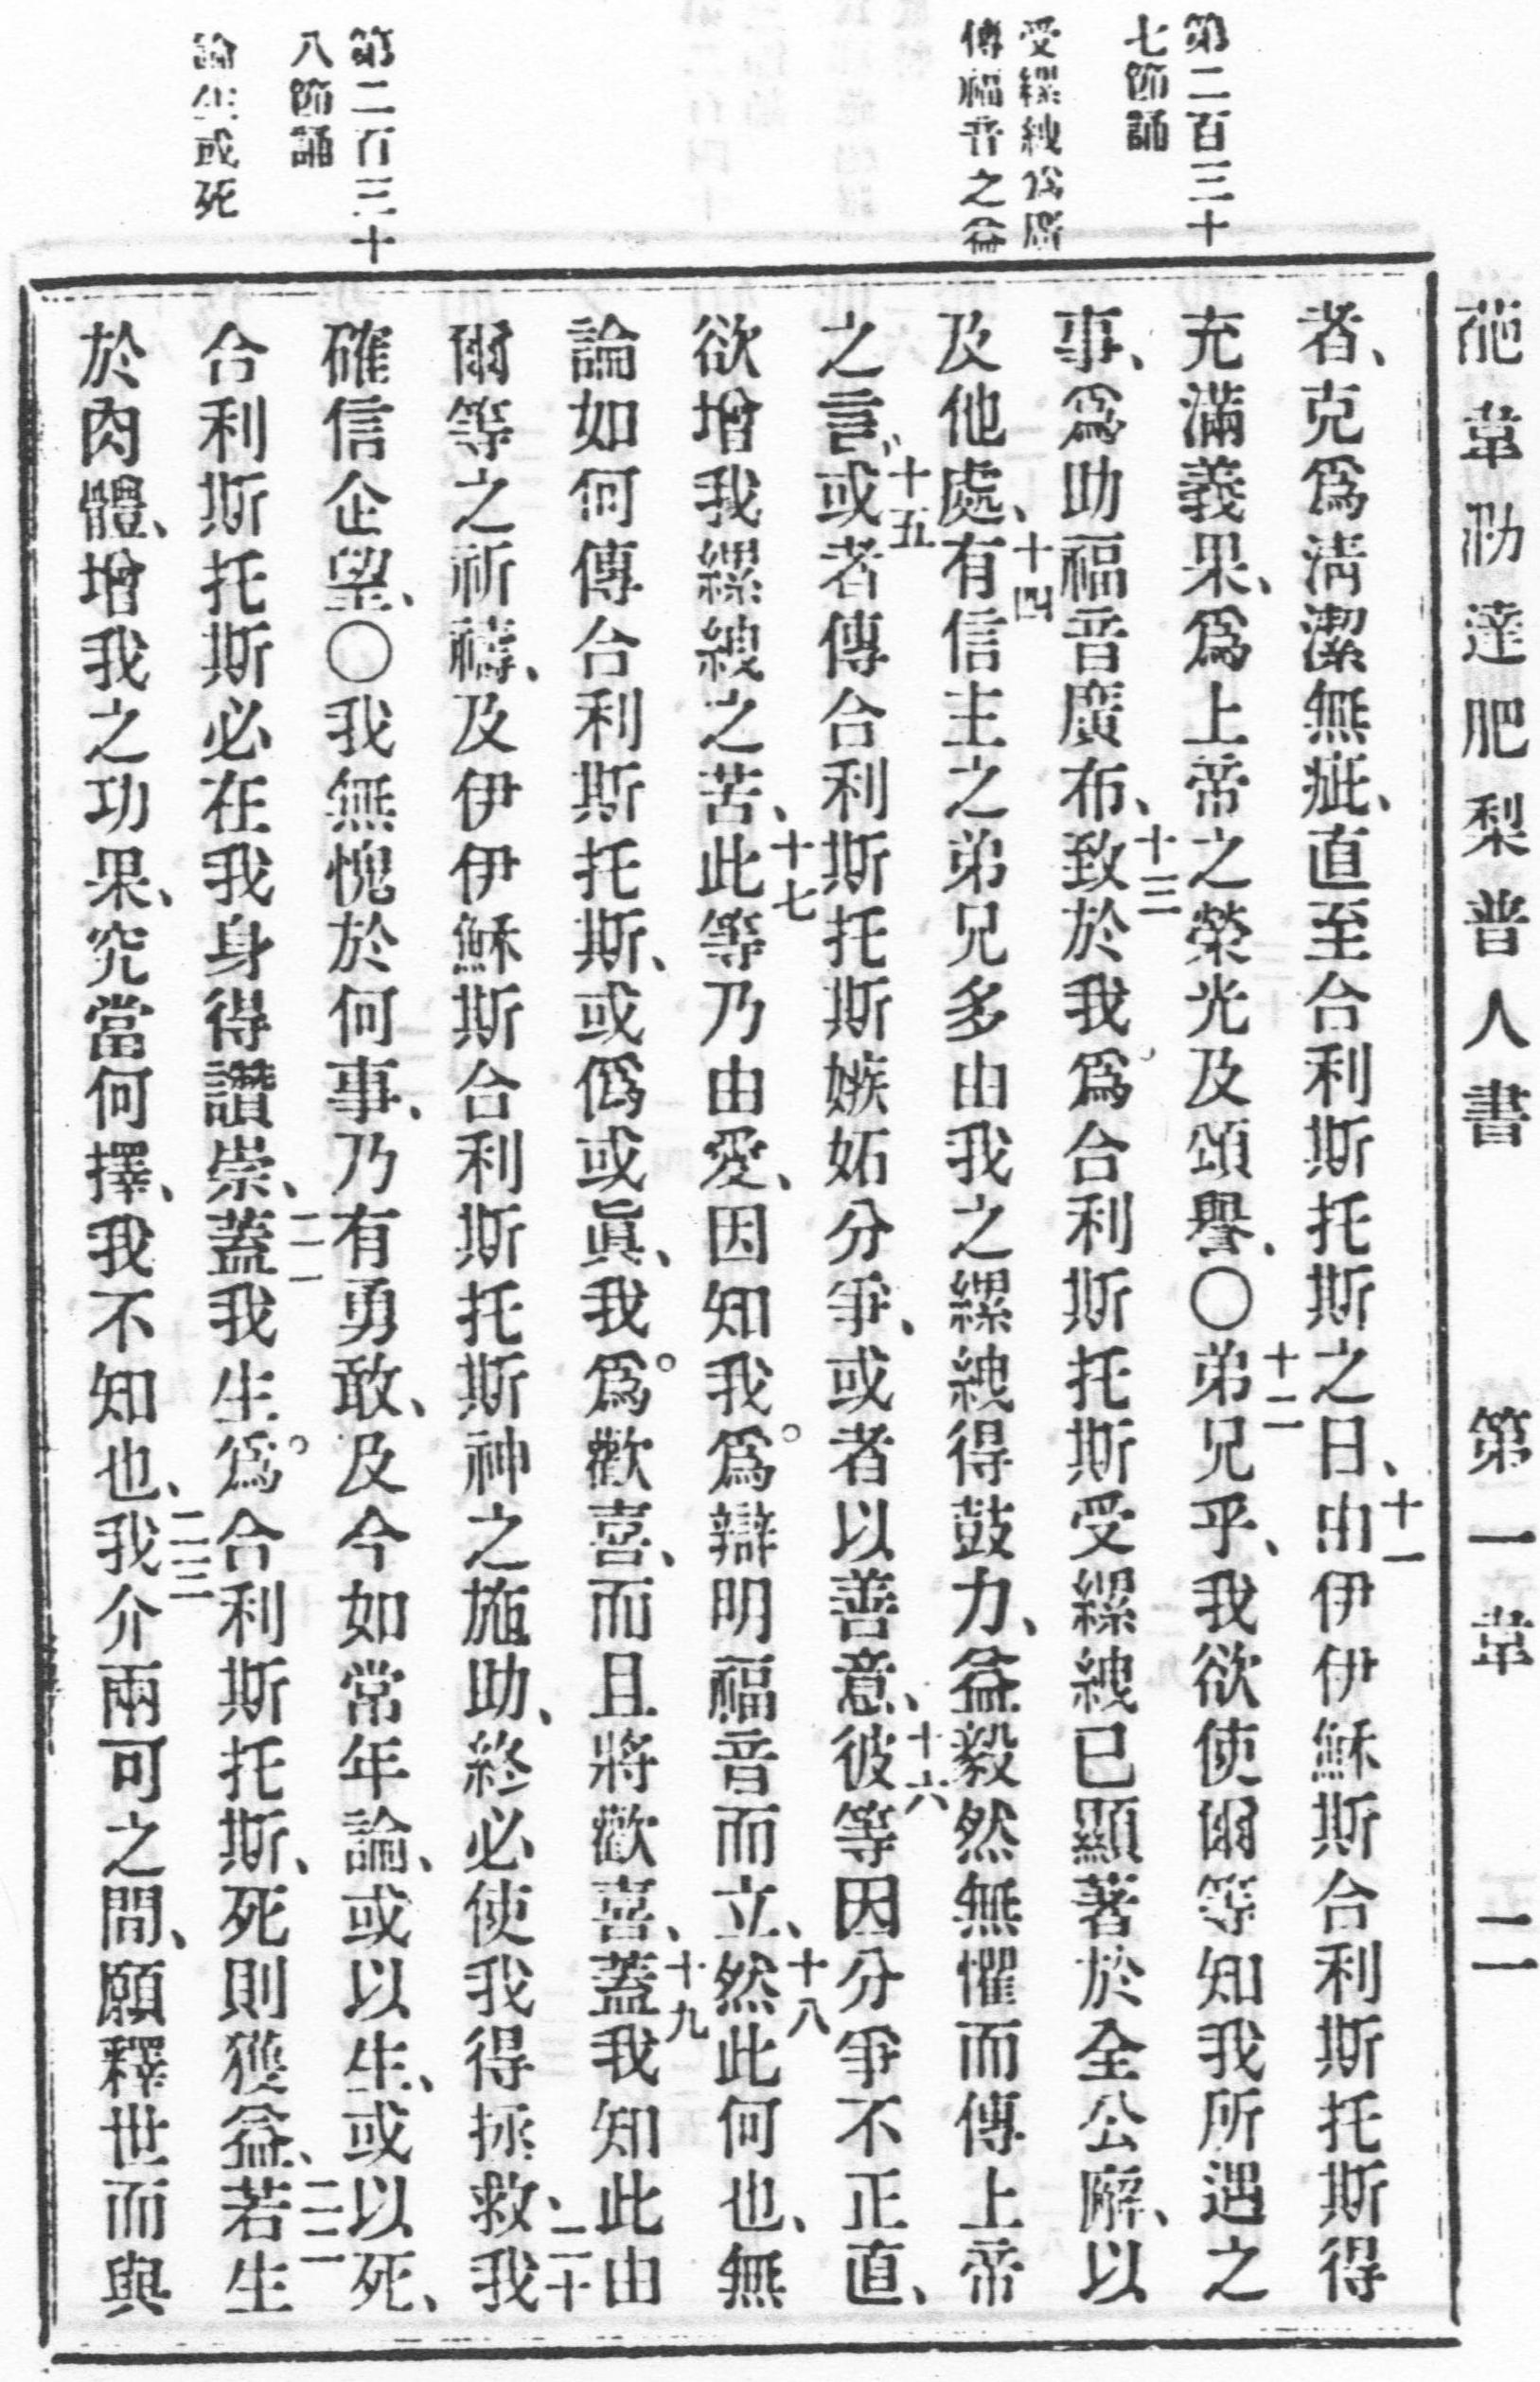 葩韋泐達肥梨普人書 第一章 二
第二百三十
七節誦
受縲絏公廨
傳福音之益
第二百三十
八節誦
論生或死
者、克爲淸潔無疵、直至合利斯托斯之日、十一由伊伊穌斯合利斯托斯得
充滿義果、爲上帝之榮光及頌譽、〇十二弟兄乎、我欲使爾等知我所遇之
事、爲助福音廣布、十三致於我爲合利斯托斯受縲絏已顯著於全公廨、以
及他處、十四有信主之弟兄多由我之縲絏得鼓力、益毅然無懼而傳上帝
之言、十五或者傳合利斯托斯嫉妬分爭、或者以善意、十六彼等因分爭不正直、
欲增我縲絏之苦、十七此等乃由愛、因知我爲辯明福音而立、十八然此何也、無
論如何傳合利斯托斯、或僞或眞、我爲歡喜、而且將歡喜、十九蓋我知此由
爾等之祈禱、及伊伊穌斯合利斯托斯神之施助、終必使我得拯救、二十我
確信企望、〇我無愧於何事、乃有勇敢、及今如常年論、或以生、或以死、
合利斯托斯必在我身得讚崇、二一蓋我生爲合利斯托斯、死則獲益、二二若生
於肉體、增我之功果、究當何擇、我不知也、二三我介兩可之間、願釋世而與